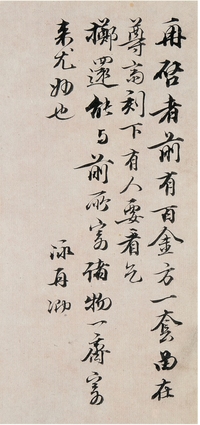 再啓者前有百金方一套尚在
尊斋刻下有人要看乞
擲還能与前所寄储物一齊寄
来尤妙也
泳再泐